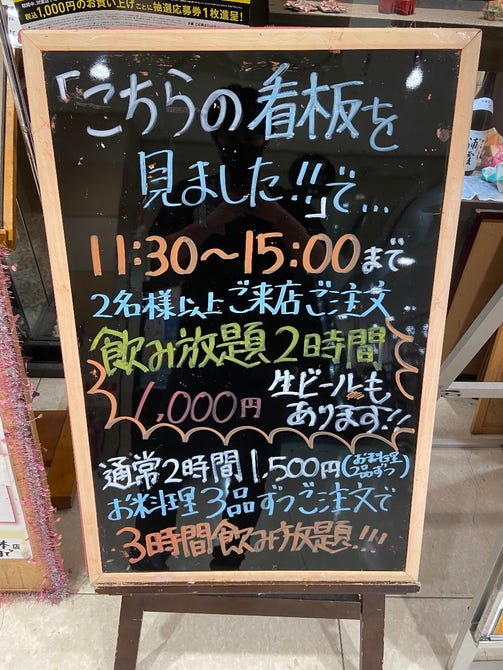 税込1,000円のお買い上げごとに抽選応募券1枚進呈!
「こちらの看板を
見ました!!」で...
11:30〜15:00まで
2名様以上ご来店ご注文
飲み放題2時間
1,000円 生ビールも
あります!!
通常2時間1,500円(お料理2品ずつ)
お料理3品ずつご注文で
3時間飲み放題!!!